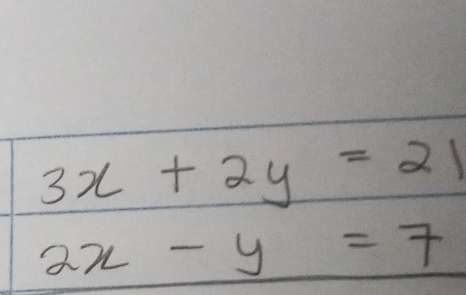 3x + 2y = 21
2x - y = 7